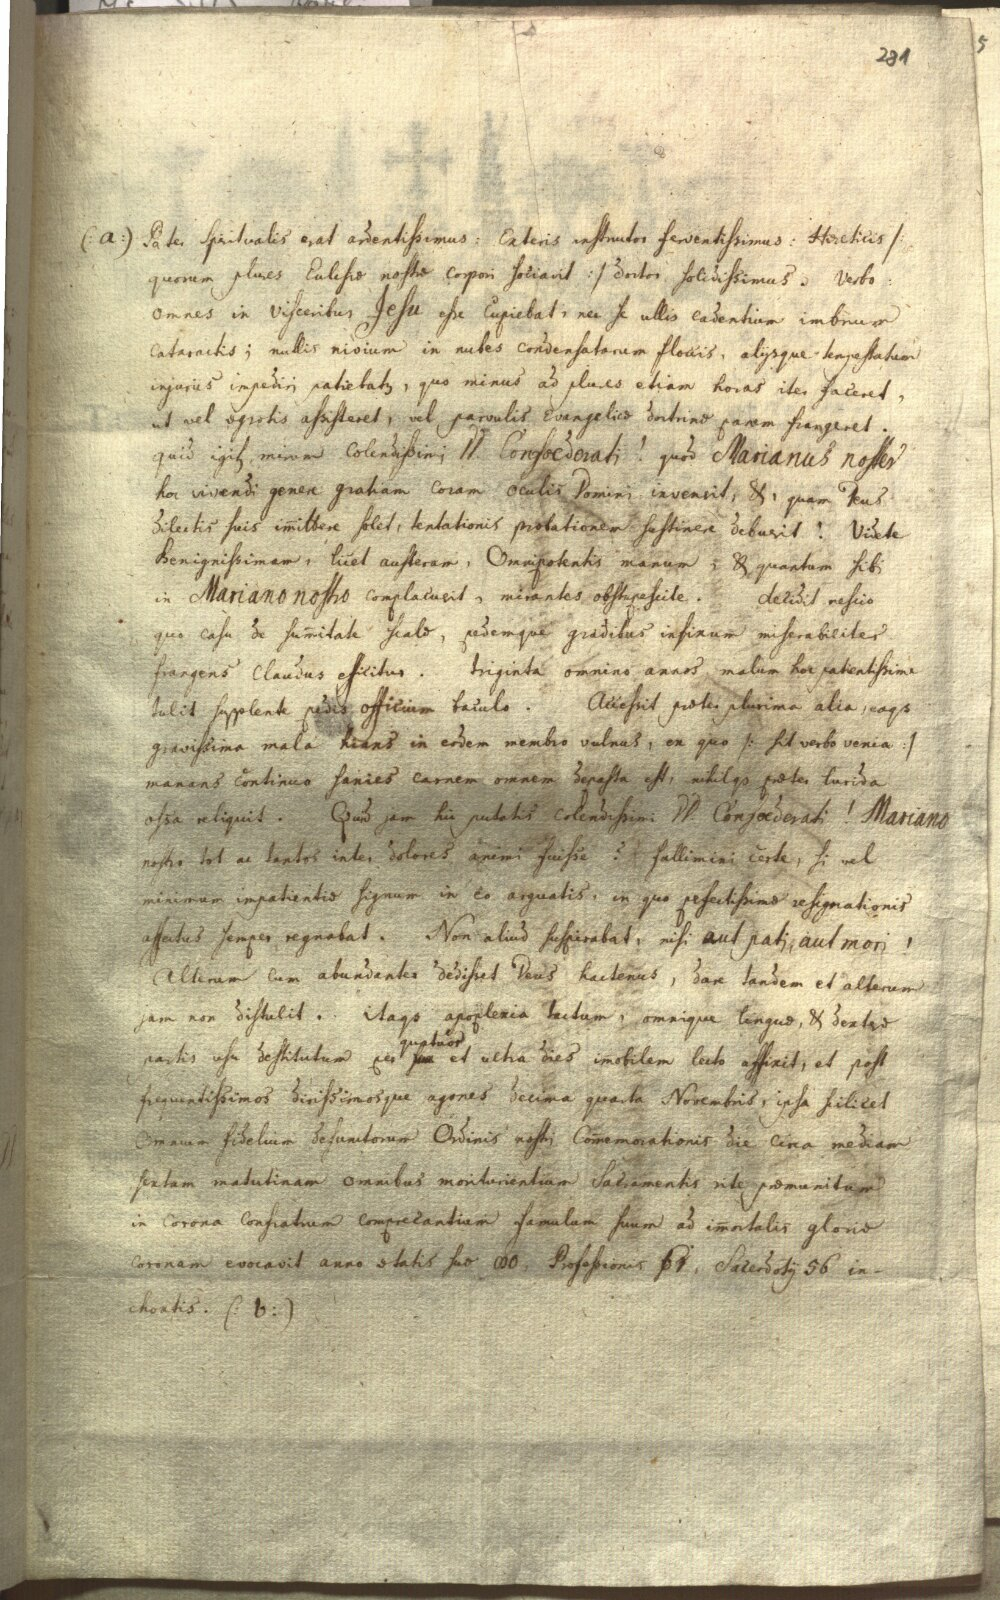 281
(: a :) Pater Spiritualis erat ardentissimus: Exteris instructor ferventissimus: Haereticis /:
quorum plures Ecclesiae nostrae corpori sociavit :/ doctor solidissimus. Verbo:
omnes in Visceribus Jesu esse Cupiebat, nec se ullis cadentium imbrium
cataractis; nullis nivium in nubes condensatarum floccis, alijsque tempestatum
injuriis impediri patiebatr, quo minus ad plures etiam horas iter faceret,
ut vel aegrotis assisteret, vel parvulis Evangelicae doctrinae panem frangeret.
quid igitr mirum Colendissimi DD. Confoederati! quod Marianus noster
hoc vivendi genere gratiam coram oculis Domini invenerit, & quam Deus
dilectis suis imittere solet, tentationis probationem sustinere debuerit! Videte
Benignissimam, licet austeram, Omnipotentis manum, & quantum sibi
in Mariano nostro complacuerit, mirantes obstupescite. decidit nescio
quo casu de sumitate scalae, pedemque gradibus infimum miserabiliter
frangens Claudus efficitur. triginta omnino annos malum hoc patientissime
tulit supplente pedis officium baculo. Accessit praeter plurima alia, eaqs
gravissima mala hians in eodem membro vulnus, ex quo /: sit verbo venia :/
manans continuo sanies carnem omnem depasta est, nihilqs praeter lurida
ossa reliquit. Quid jam hic putatis colendissimi DD. Confoederati! Mariano
nostro tot ac tantos inter dolores animi fuisse? fallimini certe, si vel
minimum impatientiae signum in eo arguatis, in quo perfectissimae resignationis
affectus semper regnabat. Non aliud suspirabat, nisi aut pati, aut mori!
Alterum cum abundanter dedisset Deus hactenus, dare tandem et alterum
jam non distulit. itaqs apoplexia tactum, omnique linguae, & dextrae
partis usu destitutum per quatuor et ultra dies imobilem lecto affixit, et post
frequentissimos dirissimosque agones decima quarta Novembris, ipsa scilicet
Omnium fidelium defunctorum Ordinis nostri Comemorationis die circa mediam
sextam matutinam omnibus moriturientium Sacramentis rite praemunitum
in corona Confratrum comprecantium famulum suum ad imortalis gloriae
coronam evocavit anno aetatis suae 80, Professionis 61, Sacerdotij 56 in-
choatis. (: b :)